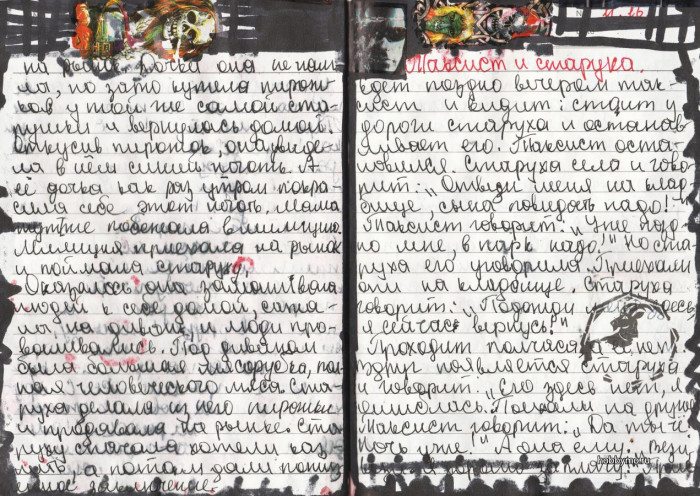 на рынке. Дочка она не наш-
ла, но зато купила пирож-
ков у той же самой ста-
рушки и вернулась домой.
Откусив пирожок, она увиде-
ла в нём синий ноготь. А
её дочка как раз утром покра-
сила себе этот ноготь. Мама
тут же побежала в милицию.
Милиция приехала на рынок
и поймала старуху.
Оказалось она заманивала
людей к себе домой, сажа-
ла на диван, и люди про-
валивались. Под диваном
была большая мясорубка, пол-
ная человеческого мяса. Ста-
руха делала из него пирожки
и продавала на рынке. Ста-
руху сначала хотели каз-
нить, а потом дали пожиз-
ненное заключение.
Таксист и старуха.
едет поздно вечером так-
сист и видит: стоит у
дороги старуха и останав-
ливает его. Таксист оста-
новился. Старуха села и гово-
рит: „Отвези меня на клад-
бище, сына повидать надо!"
Таксист говорит: „Уже позд-
но мне, в парк надо!" Но ста-
руха его уговорила. Приехали
они на кладбище. Старуха
говорит: „Подожди здесь,
я сейчас вернусь!"
Проходит полчаса, её нет,
вдруг появляется старуха
и говорит: „Его здесь нет, я
ошиблась. Поехали на другое."
Таксист говорит: „Да ты чё!
Ночь уже!" А она ему: „Вези
hobbyme.ru